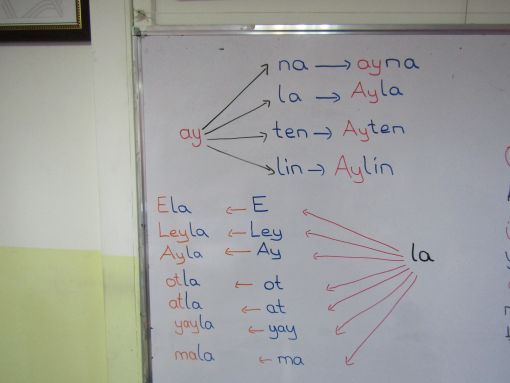 na → ayna
la → Ayla
ay ten → Ayten
lin → Aylin
Ela ← E
Leyla ← Ley
Ayla ← Ay la
otla ← ot
atla ← at
yayla ← yay
mala ← ma